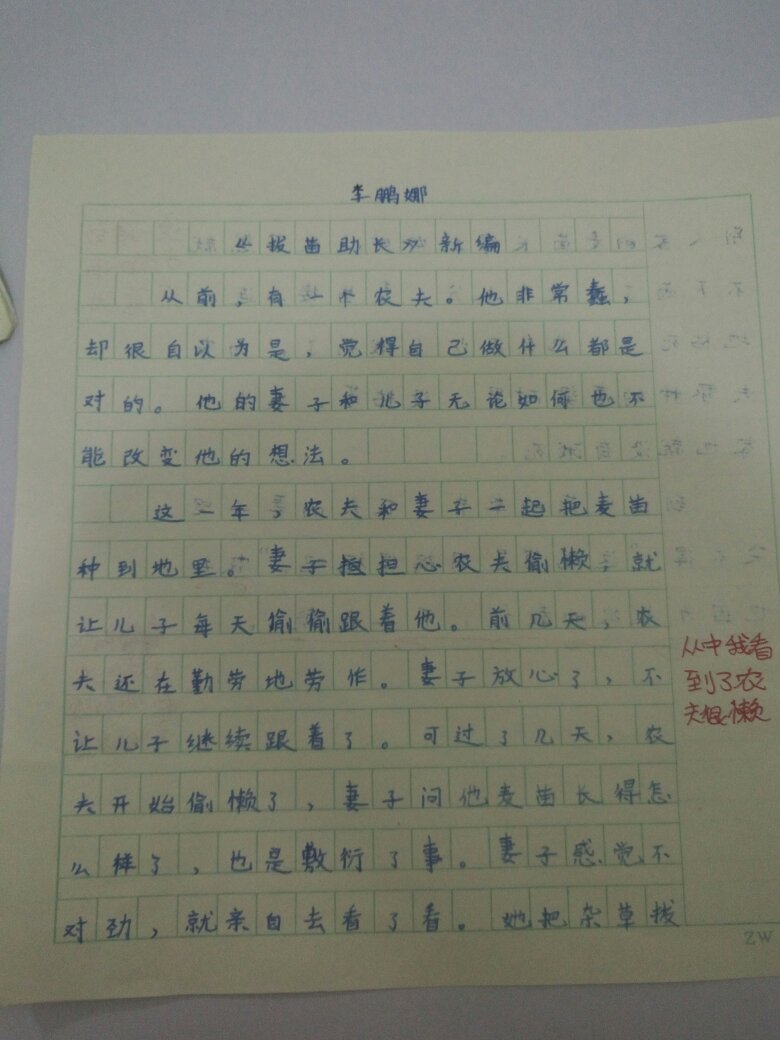 李鹏娜
《拔苗助长》新编
从前，有一个农夫。他非常蠢，
却很自以为是，觉得自己做什么都是
对的。他的妻子和儿子无论如何也不
能改变他的想法。
这一年，农夫和妻子一起把麦苗
种到地里。妻子担心农夫偷懒，就
让儿子每天偷偷跟着他。前几天，农
夫还在勤劳地劳作。妻子放心了，不
让儿子继续跟着了。可过了几天，农
夫开始偷懒了，妻子问他麦苗长得怎
么样了，也是敷衍了事。妻子感觉不
对劲，就亲自去看了看。她把杂草拔
从中我看
到了农
夫很懒
ZW